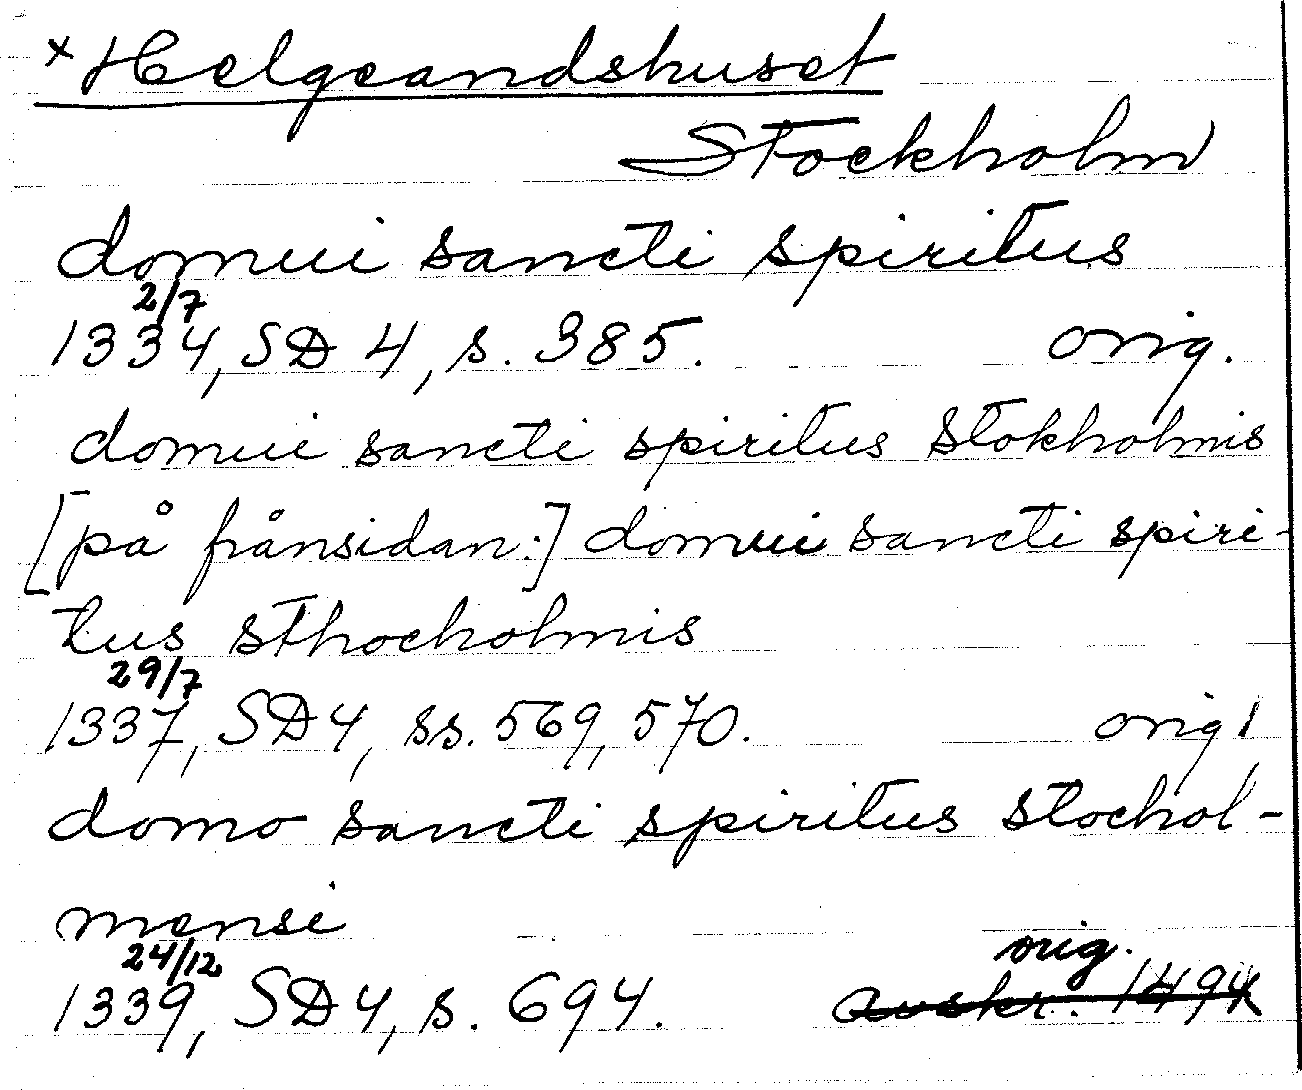 × Helgeandshuset
Stockholm
domui sancti spiritus
2/7
1334, SD 4, s. 385. orig.
domui sancti spiritus Stokholmis
[på frånsidan:] domui sancti spiri-
tus sthocholmis
29/7
1337, SD 4, ss. 569, 570. orig!
domo sancti spiritus stochol-
mensi
24/12 orig.
1339, SD 4, s. 694. avskr. 1494